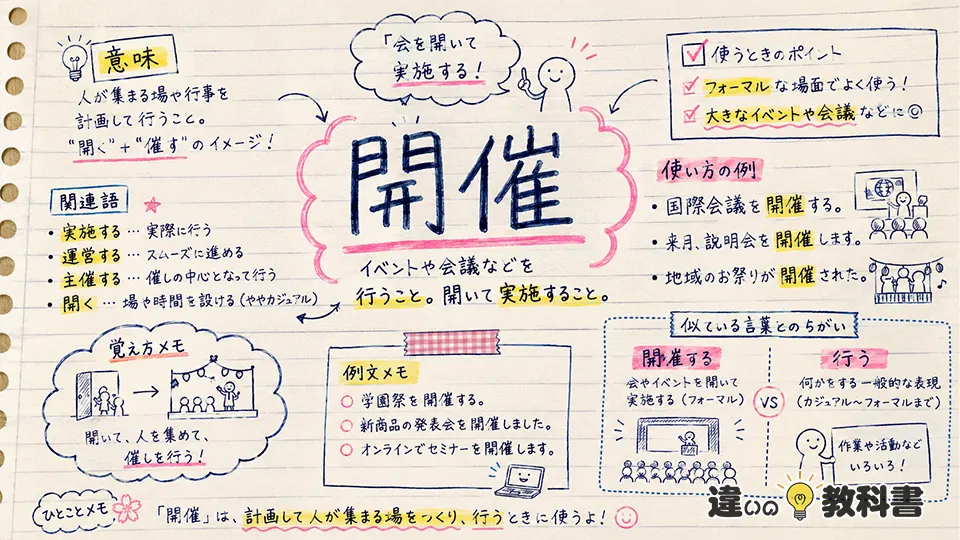 意味
人が集まる場や行事を
計画して行うこと。
"開く"+"催す"のイメージ！
「会を開いて
実施する！
使うときのポイント
フォーマルな場面でよく使う！
大きなイベントや会議などに☺
開催
イベントや会議などを
行うこと。開いて実施すること。
関連語
・実施する…実際に行う
・運営する…スムーズに進める
・主催する…催しの中心となって行う
・開く…場や時間を設ける(ややカジュアル)
使い方の例
・国際会議を開催する。
・来月、説明会を開催します。
・地域のお祭りが開催された。
覚え方メモ
開いて、人を集めて、
催しを行う！
例文メモ
○ 学園祭を開催する。
○ 新商品の発表会を開催しました。
○ オンラインでセミナーを開催します。
似ている言葉とのちがい
開催する
会やイベントを開いて
実施する(フォーマル)
VS
行う
何かをする一般的な表現
(カジュアル〜フォーマルまで)
作業や活動など
いろいろ！
ひとことメモ
「開催」は、計画して人が集まる場をつくり、行うときに使うよ！
違いの教科書